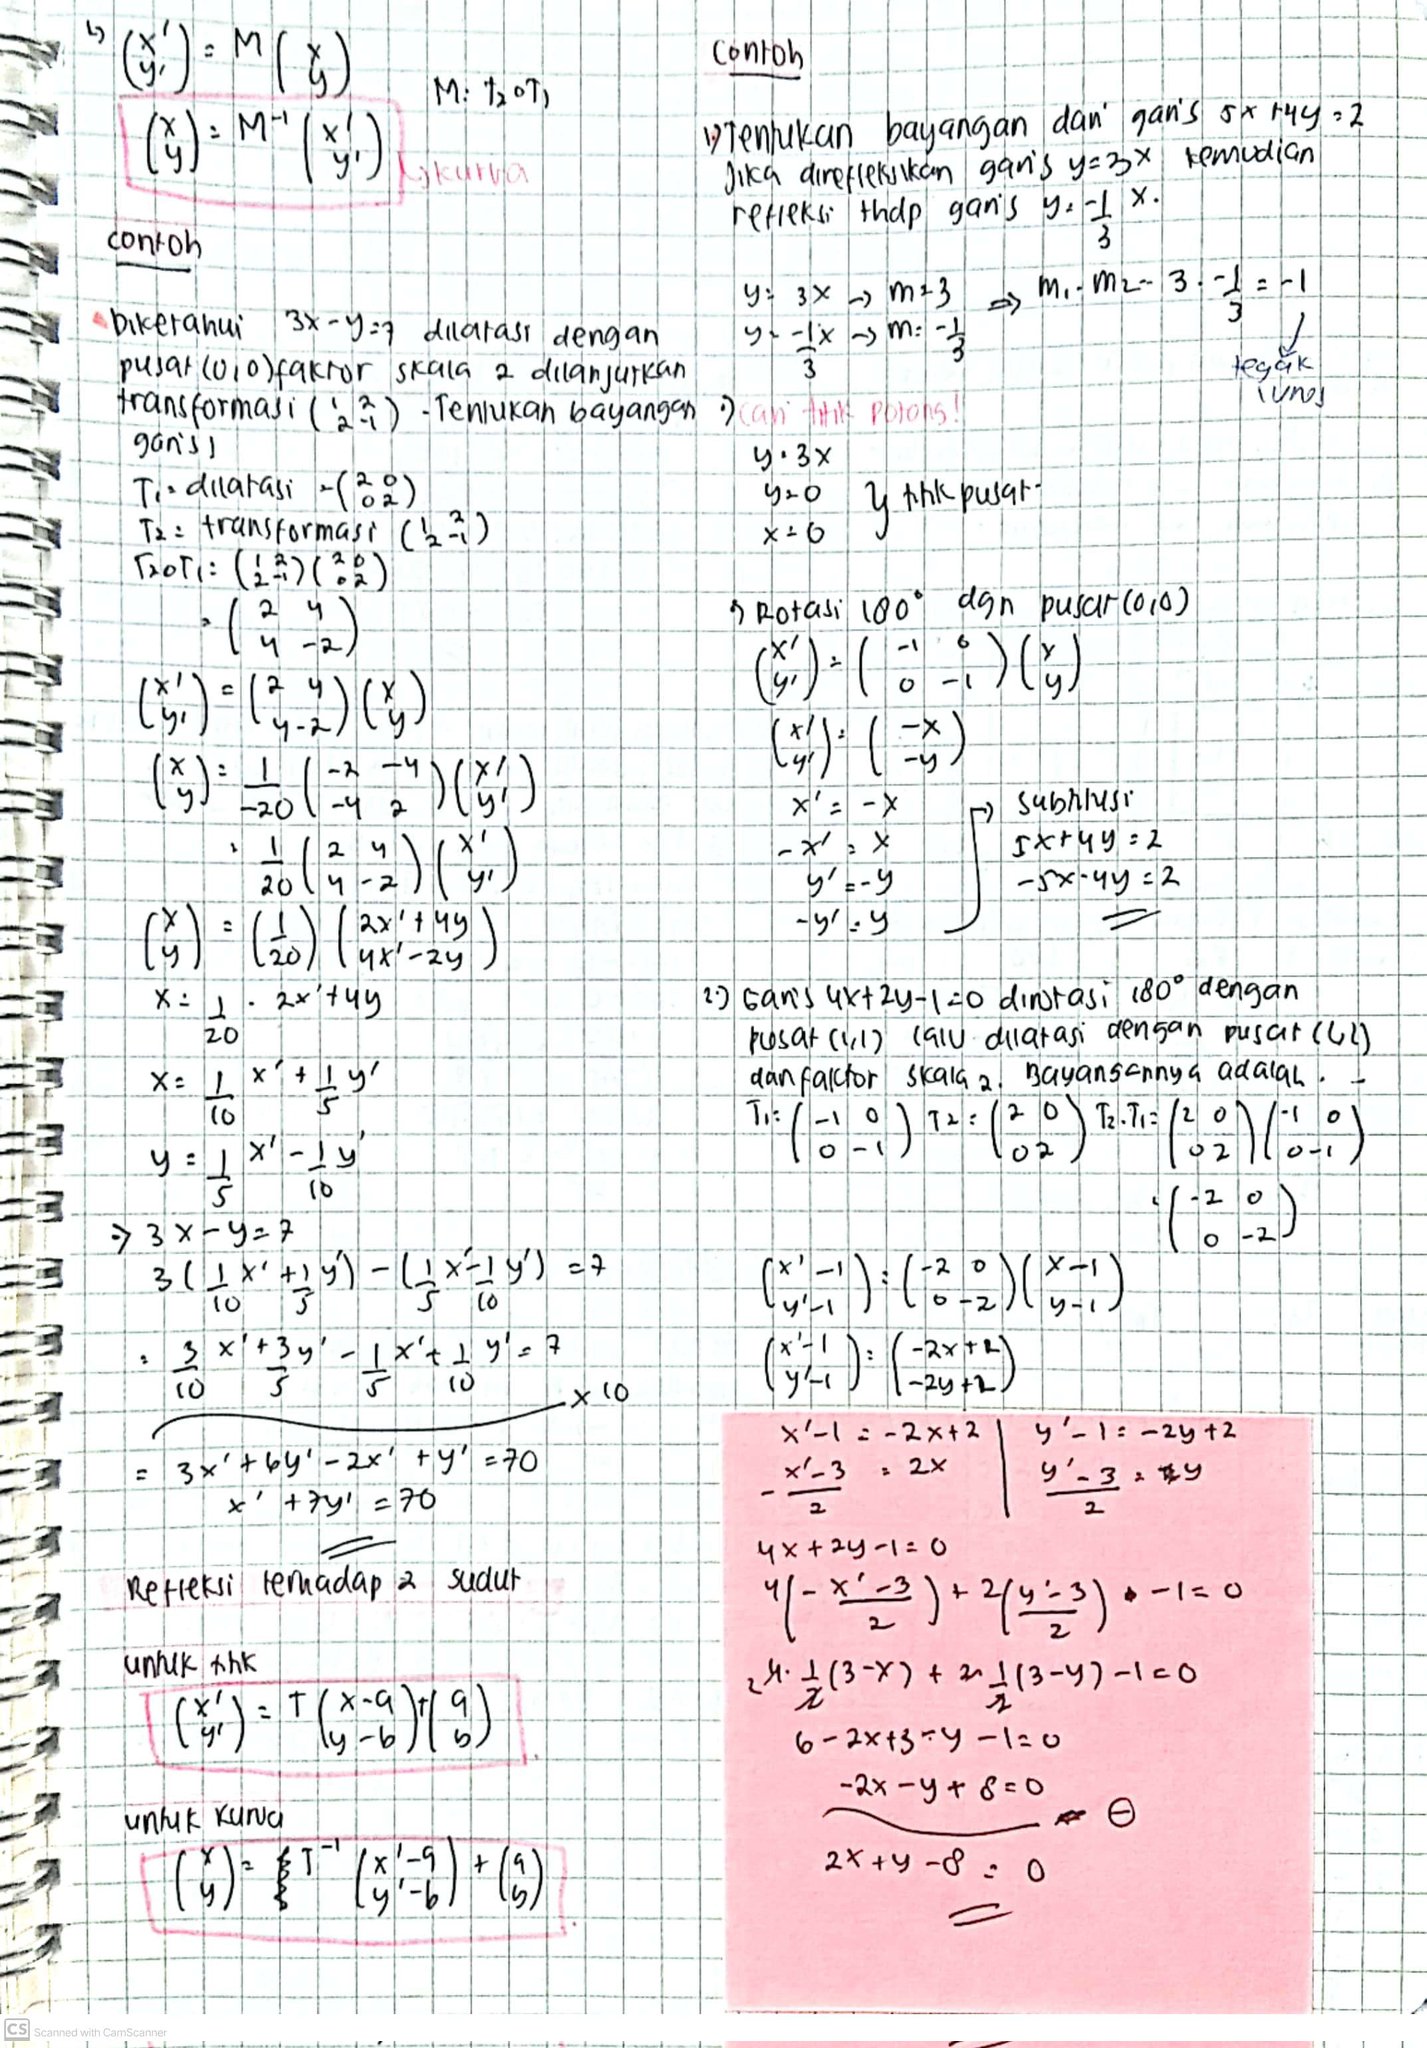 ↳ (x' y') = M (x y)
M: T₂oT₁
(x y) = M⁻¹ (x' y')
↳ kurva
contoh
Diketahui 3x-y=7 dilatasi dengan
pusat (0,0) faktor skala 2 dilanjutkan
transformasi (1 2 / 2 -1) - Tentukan bayangan
garis)
T₁ = dilatasi = (2 0 / 0 2)
T₂ = transformasi (1 2 / 2 -1)
T₂oT₁ : (1 2 / 2 -1) (2 0 / 0 2)
= (2 4 / 4 -2)
(x' y') = (2 4 / 4 -2) (x y)
(x y) = 1/-20 (-2 -4 / -4 2) (x' y')
= 1/20 (2 4 / 4 -2) (x' y')
(x y) = (1/20) (2x'+4y / 4x'-2y)
x = 1/20 . 2x'+4y
x = 1/10 x' + 1/5 y'
y = 1/5 x' - 1/10 y'
⇒ 3x-y=7
3(1/10 x' + 1/5 y') - (1/5 x' - 1/10 y') = 7
= 3/10 x' + 3/5 y' - 1/5 x' + 1/10 y' = 7
x 10
= 3x' + 6y' - 2x' + y' = 70
x' + 7y' = 70
Refleksi terhadap 2 sudut
untuk titik
(x' y') = T (x-a y-b) + (a b)
untuk kurva
(x y) = T⁻¹ (x'-a y'-b) + (a b)
contoh
1) Tentukan bayangan dari garis 5x+4y=2
Jika direfleksikan garis y=3x kemudian
refleksi thdp garis y = -1/3 x.
y = 3x → m=3 ⇒ m₁. m₂ = 3 . -1/3 = -1
y = -1/3 x → m = -1/3
tegak
lurus
cari titik potong!
y = 3x
y=0 } titik pusat
x=0
→ Rotasi 180° dgn pusat (0,0)
(x' y') = (-1 0 / 0 -1) (x y)
(x' y') = (-x -y)
x' = -x → subtitusi
-x' = x 5x+4y=2
y' = -y -5x-4y=2
-y' = y
2) Garis 4x+2y-1=0 dirotasi 180° dengan
pusat (1,1) lalu dilatasi dengan pusat (1,1)
dan faktor skala 2. Bayangannya adalah . -
T₁ = (-1 0 / 0 -1) T₂ = (2 0 / 0 2) T₂.T₁ = (2 0 / 0 2) (-1 0 / 0 -1)
= (-2 0 / 0 -2)
(x'-1 y'-1) = (-2 0 / 0 -2) (x-1 y-1)
(x'-1 y'-1) = (-2x+2 -2y+2)
x'-1 = -2x+2 | y'-1 = -2y+2
- x'-3/2 = 2x | y'-3/2 = y
4x+2y-1=0
4(- x'-3/2) + 2(y'-3/2) -1=0
4. 1/2 (3-x) + 2. 1/2 (3-y) -1=0
6-2x+3-y-1=0
-2x-y+8=0
⊖
2x+y-8 = 0
CS Scanned with CamScanner